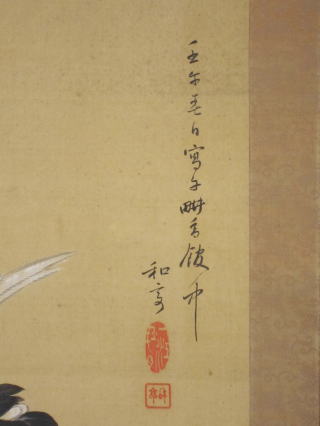 壬午春日寫于耕香館中
和亭